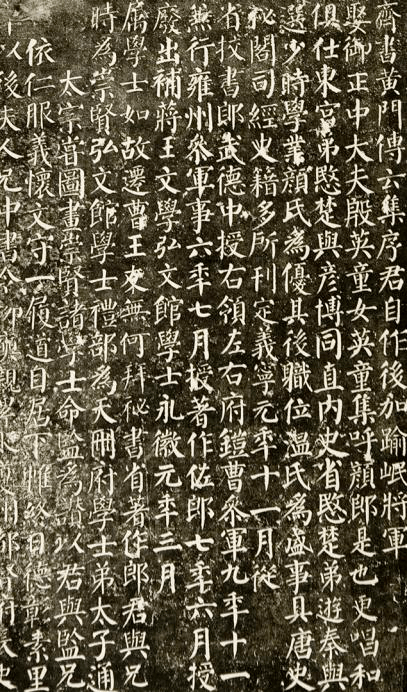 齊書黃門傳云集序君自作後加踰岷將軍
娶御正中大夫殷英童女英童集呼顏郎是也更唱和
俱仕東宮弟愍楚與彥博同直內史省愍楚弟遊秦與
選少時學業顏氏為優其後職位溫氏為盛事具唐史
秘閣司經史籍多所刊定義寧元年十一月從
省挍書郎武德中授右領左右府鎧曹參軍九年十一
無行雍州參軍事六年七月授著作佐郎七年六月授
廢出補蔣王文學弘文館學士永徽元年三月
屬學士如故遷曹王友無何拜秘書省著作郎君與兄
時為崇賢弘文館學士禮部為天冊府學士弟太子通
太宗嘗圖畫崇賢諸學士命監為讚以君與監兄
依仁服義懷文守一履道自居下帷終日德彰素里
以後夫人兄中書令